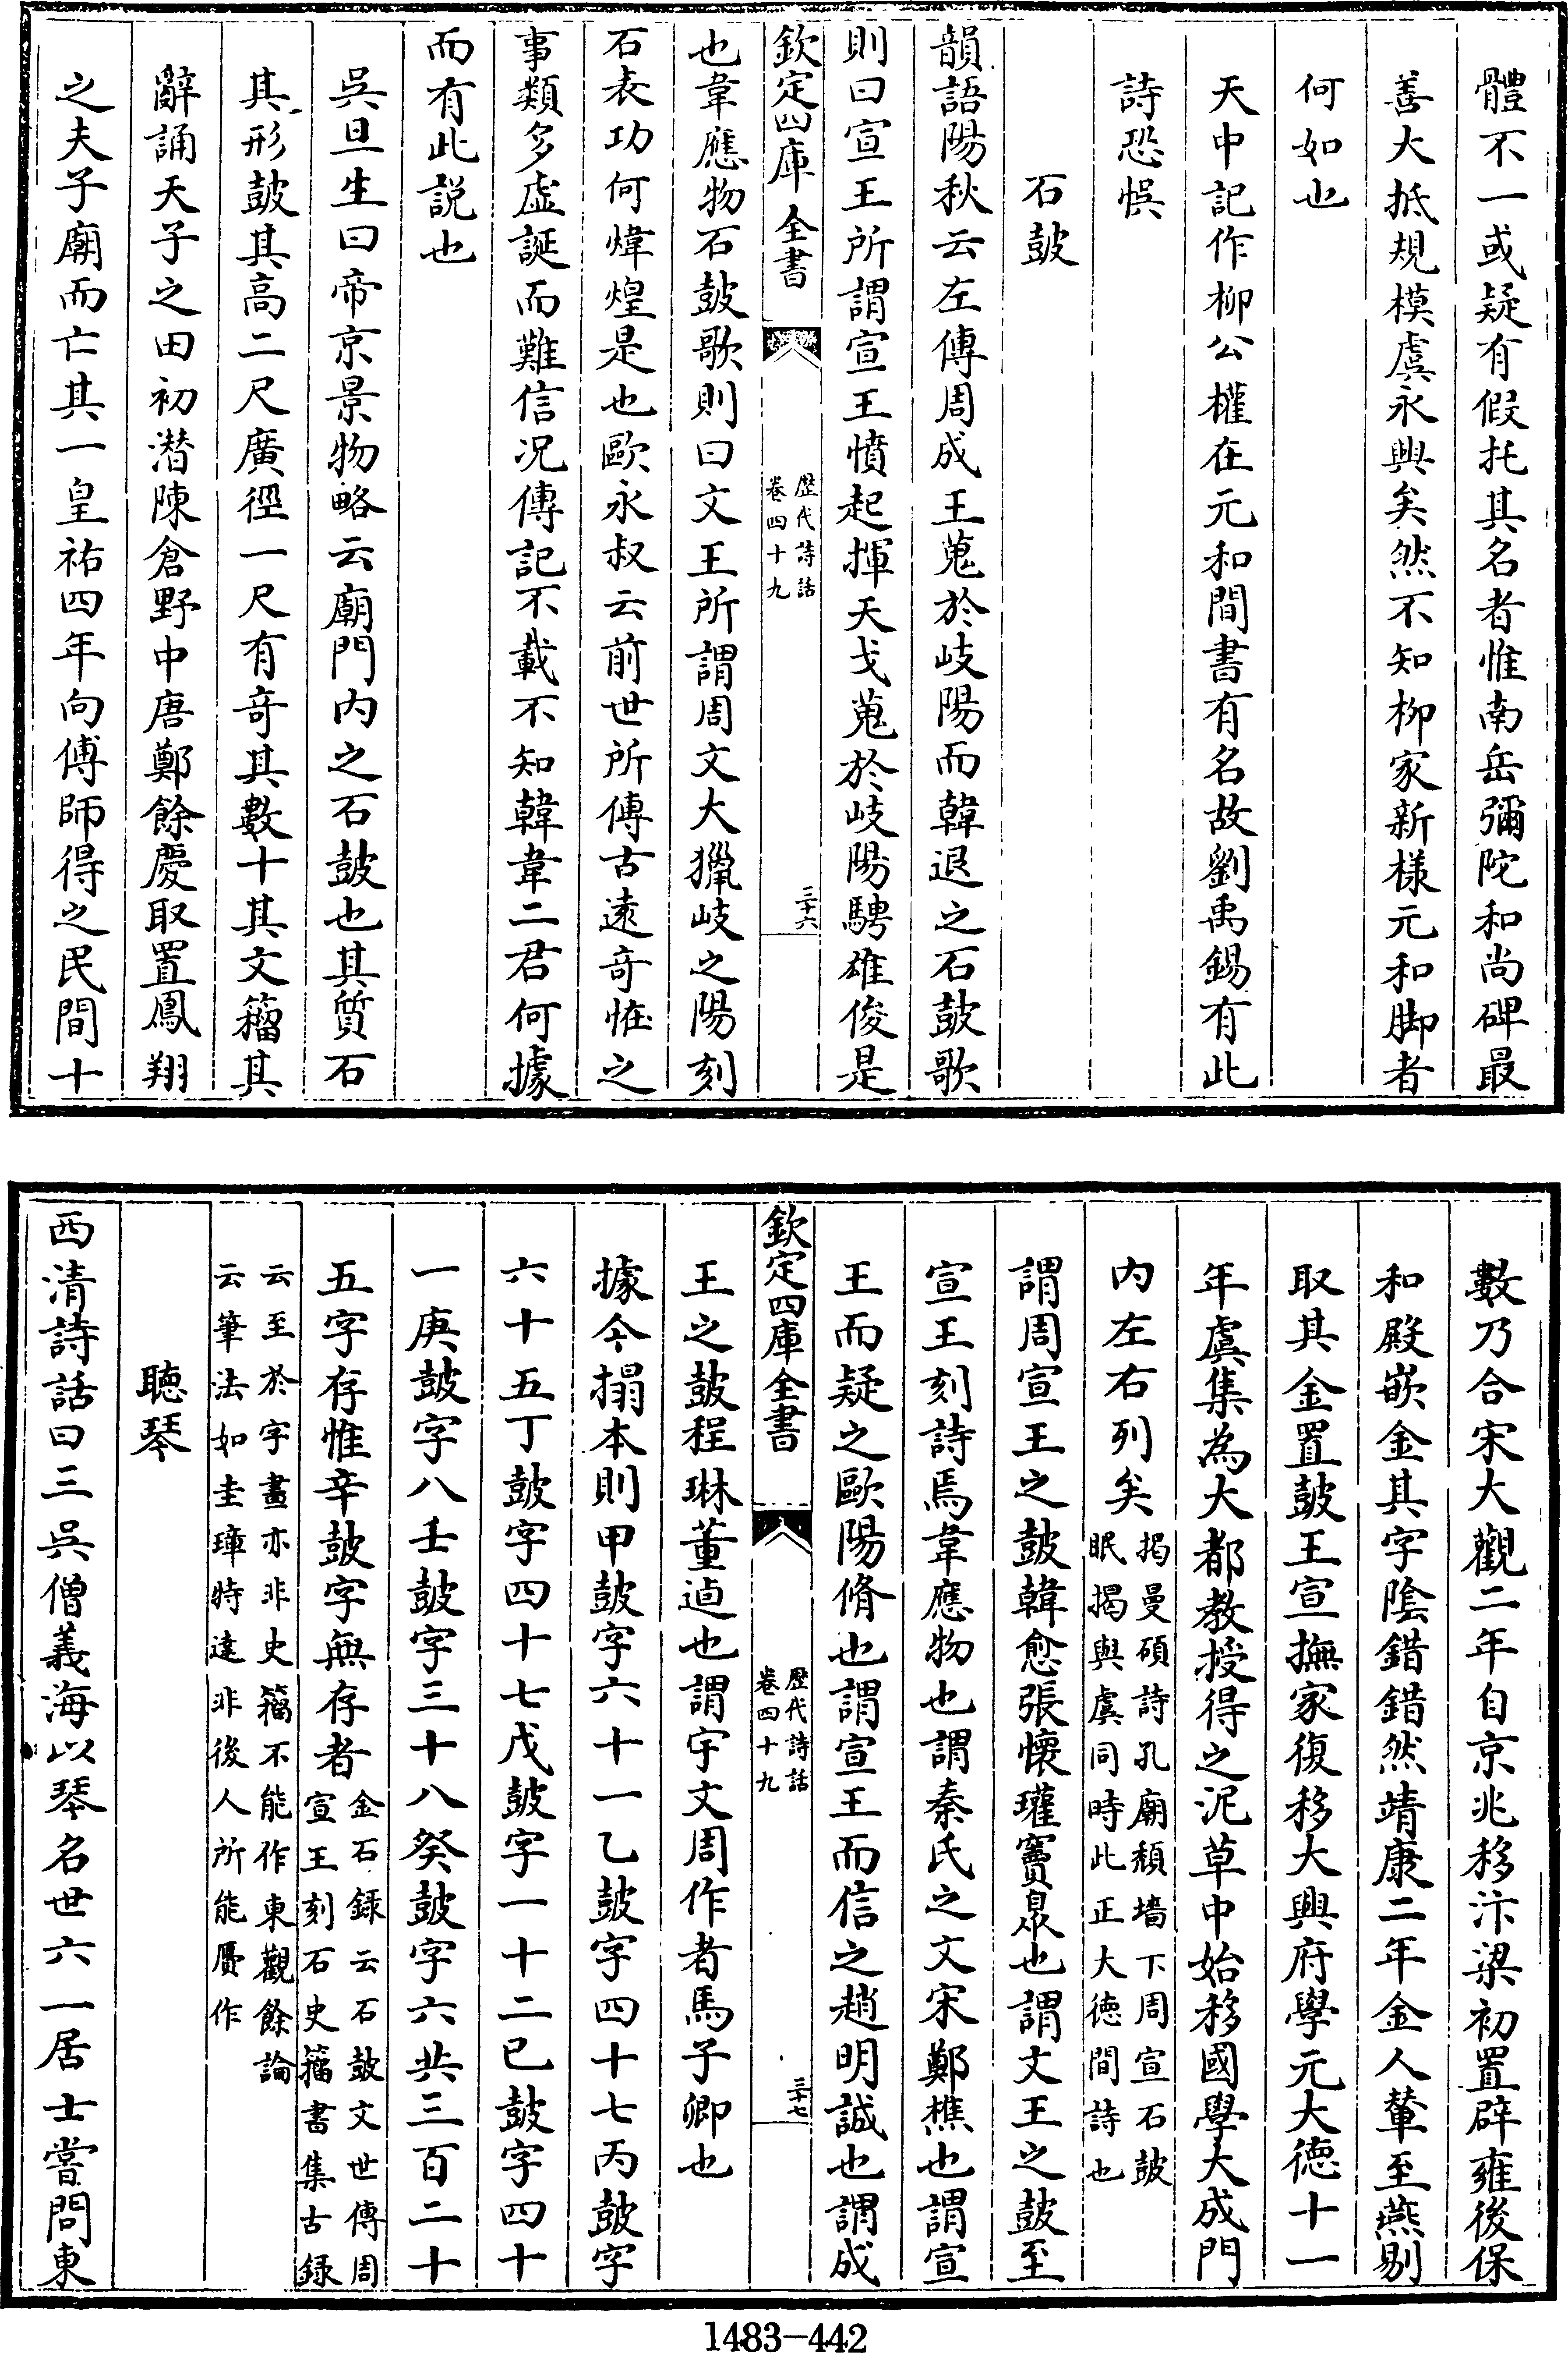 體不一或疑有假托其名者惟南岳彌陀和尚碑最
善大抵規模虞永興矣然不知柳家新樣元和脚者
何如也
天中記作柳公權在元和間書有名故劉禹錫有此
詩恐悞
石鼓
韻語陽秋云左傳周成王蒐於岐陽而韓退之石鼓歌
則曰宣王所謂宣王憤起揮天戈蒐於岐陽騁雄俊是
欽定四庫全書
歷代詩話
卷四十九
三十六
也韋應物石鼓歌則曰文王所謂周文大獵岐之陽刻
石表功何煒煌是也歐永叔云前世所傳古遠竒恠之
事類多虛誕而難信况傳記不載不知韓韋二君何據
而有此説也
吳旦生曰帝京景物略云廟門内之石鼓也其質石
其形鼓其高二尺廣徑一尺有竒其數十其文籀其
辭誦天子之田初潜陳倉野中唐鄭餘慶取置鳳翔
之夫子廟而亡其一皇祐四年向傅師得之民間十
數乃合宋大觀二年自京兆移汴梁初置辟雍後保
和殿嵌金其字陰錯錯然靖康二年金人輦至燕剔
取其金置鼓王宣撫家復移大興府學元大徳十一
年虞集為大都教授得之泥草中始移國學大成門
内左右列矣掲曼碩詩孔廟頹墻下周宣石鼓
眠揭與虞同時此正大徳間詩也
謂周宣王之鼓韓愈張懷瓘竇臮也謂文王之鼓至
宣王刻詩焉韋應物也謂秦氏之文宋鄭樵也謂宣
王而疑之歐陽脩也謂宣王而信之趙明誠也謂成
欽定四庫全書
歷代詩話
卷四十九
三十七
王之鼓程琳董逌也謂宇文周作者馬子卿也
據今搨本則甲鼓字六十一乙鼓字四十七丙鼓字
六十五丁鼓字四十七戊鼓字一十二已鼓字四十
一庚鼓字八壬鼓字三十八癸鼓字六共三百二十
五字存惟辛鼓字無存者金石録云石鼓文世傳周
宣王刻石史籀書集古録
云至於字畫亦非史籀不能作東觀餘論
云筆法如圭璋特達非後人所能贗作
聴琴
西清詩話曰三吳僧義海以琴名世六一居士嘗問東
1483-442